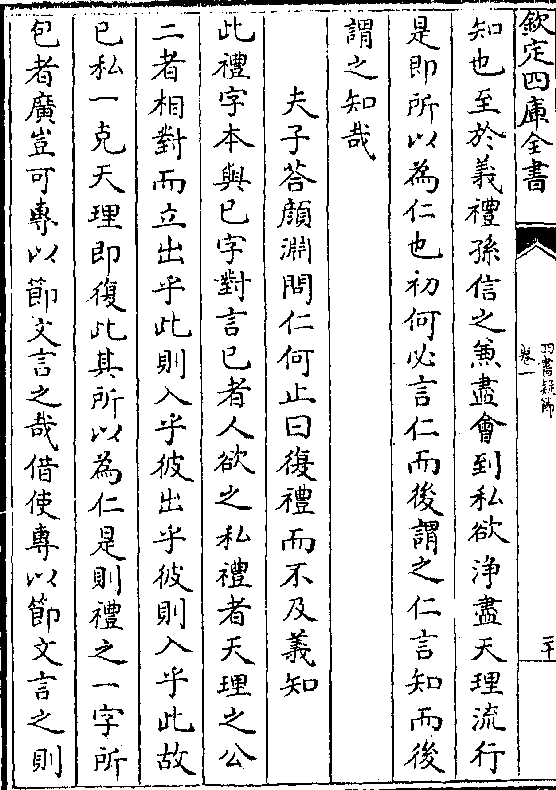 欽定四庫全書
四書疑節
卷一
二十
知也至於義禮孫信之兼盡會到私欲浄盡天理流行
是即所以為仁也初何必言仁而後謂之仁言知而後
謂之知哉
夫子荅顔淵問仁何止曰復禮而不及義知
此禮字本與已字對言已者人欲之私禮者天理之公
二者相對而立出乎此則入乎彼出乎彼則入乎此故
已私一克天理即復此其所以為仁是則禮之一字所
包者廣豈可專以節文言之哉借使專以節文言之則